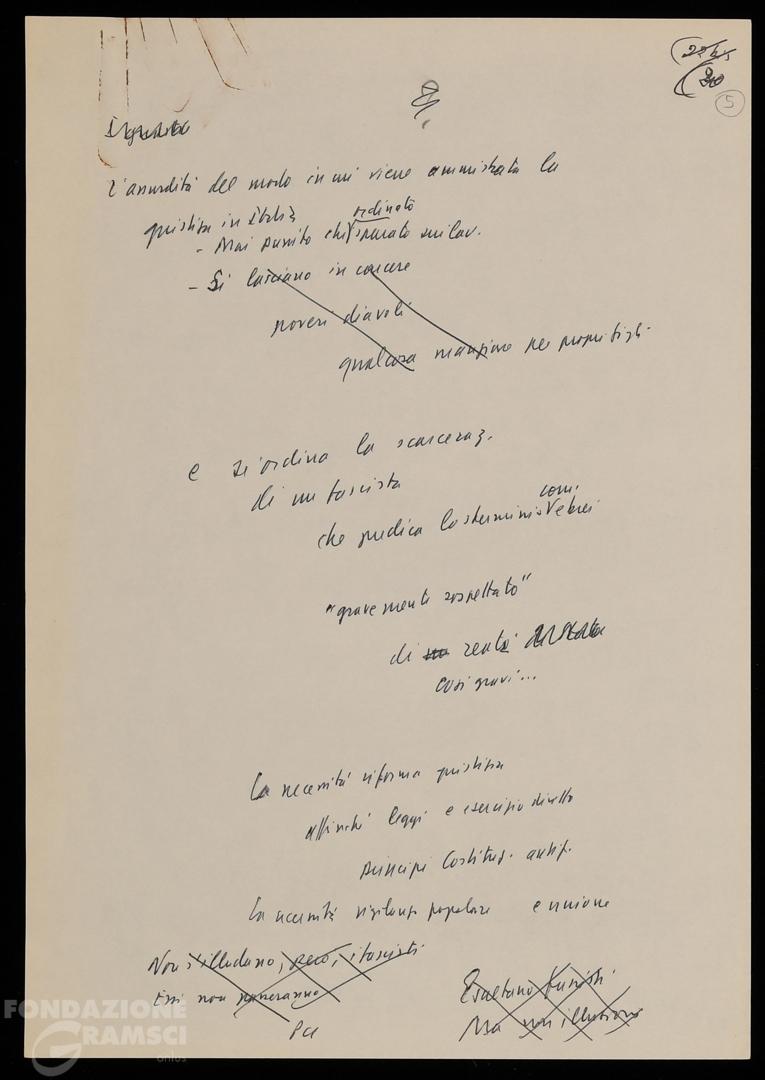 8/.
5
L'assurdità del modo in cui viene amministrata la
giustizia in Italia
ordinato
- Mai punito chi sparato sui lav.
- Si lasciano in carcere
poveri diavoli
qualcosa mangiare per propri figli
e si ordina la scarceraz.
di un fascista
che predica lo sterminio ebrei
com.
"gravemente sospettato"
di reati
così gravi...
La necessità riforma giustizia
affinché leggi e esercizio diretto
principi Costituz. antif.
La necessità vigilanza popolare e unione
Non s'illudano, però, i fascisti
Essi non passeranno
Pci
Esultano fascisti
Ma non illusioni
FONDAZIONE
GRAMSCI
onlus